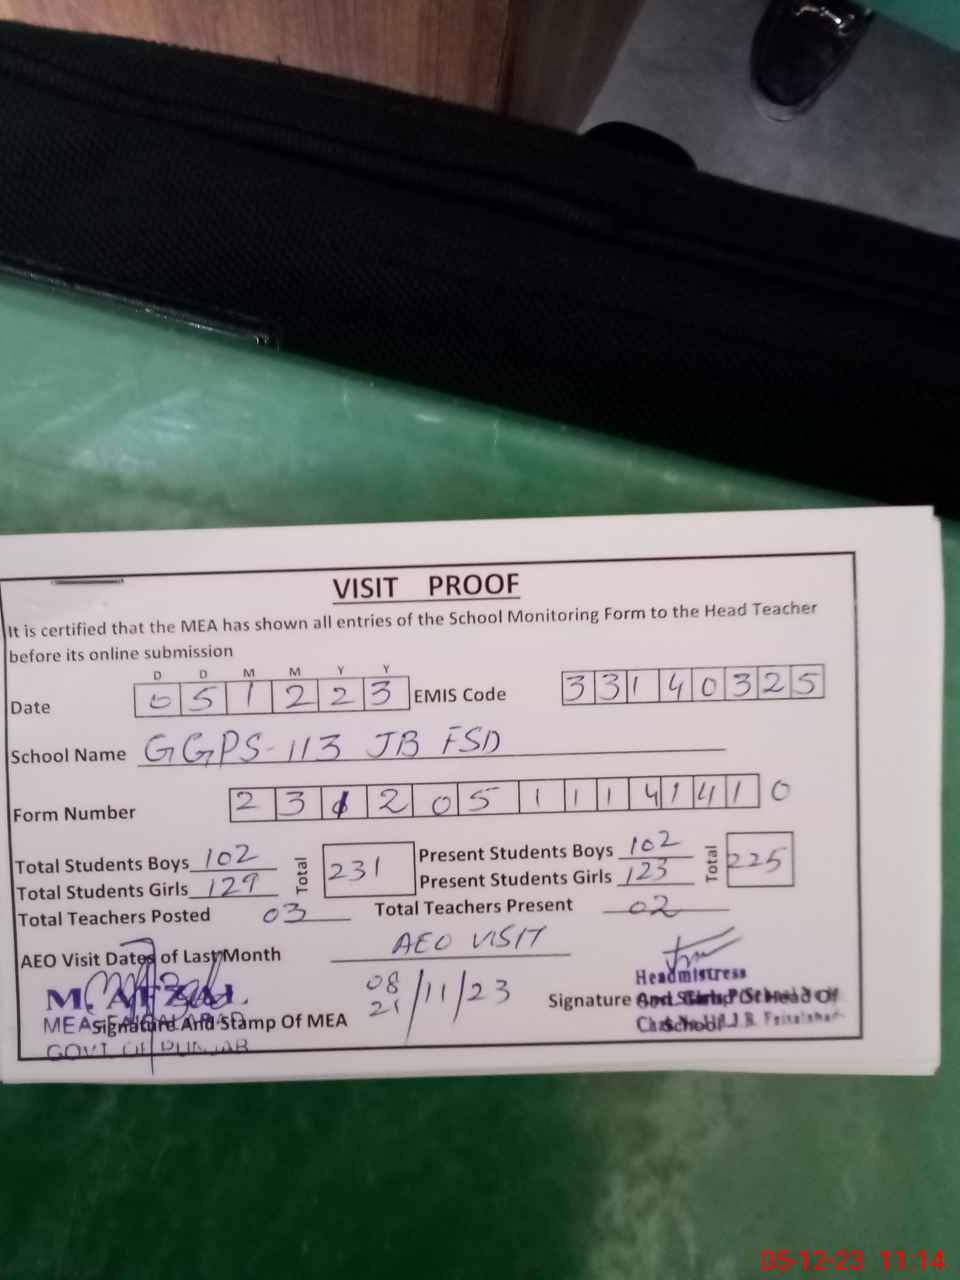 VISIT PROOF
It is certified that the MEA has shown all entries of the School Monitoring Form to the Head Teacher
before its online submission
D D M M Y Y
Date 0 5 1 2 2 3 EMIS Code 3 3 1 4 0 3 2 5
School Name GGPS-113 JB FSD
Form Number 2 3 1 2 0 5 1 1 1 4 1 4 1 0
Total Students Boys 102 Total 231 Present Students Boys 102 Total 225
Total Students Girls 129 Present Students Girls 123
Total Teachers Posted 03 Total Teachers Present 02
AEO Visit Dates of Last Month AEO VISIT
08
21 /11/23
M. AFZAL
MEA FAISALABAD
Signature And Stamp Of MEA
GOVT. OF PUNJAB
Headmistress
Signature And Stamp Of Head Of
School
Govt. Girls P/S
Chak No. J.B. Faisalabad
05-12-23 11:14